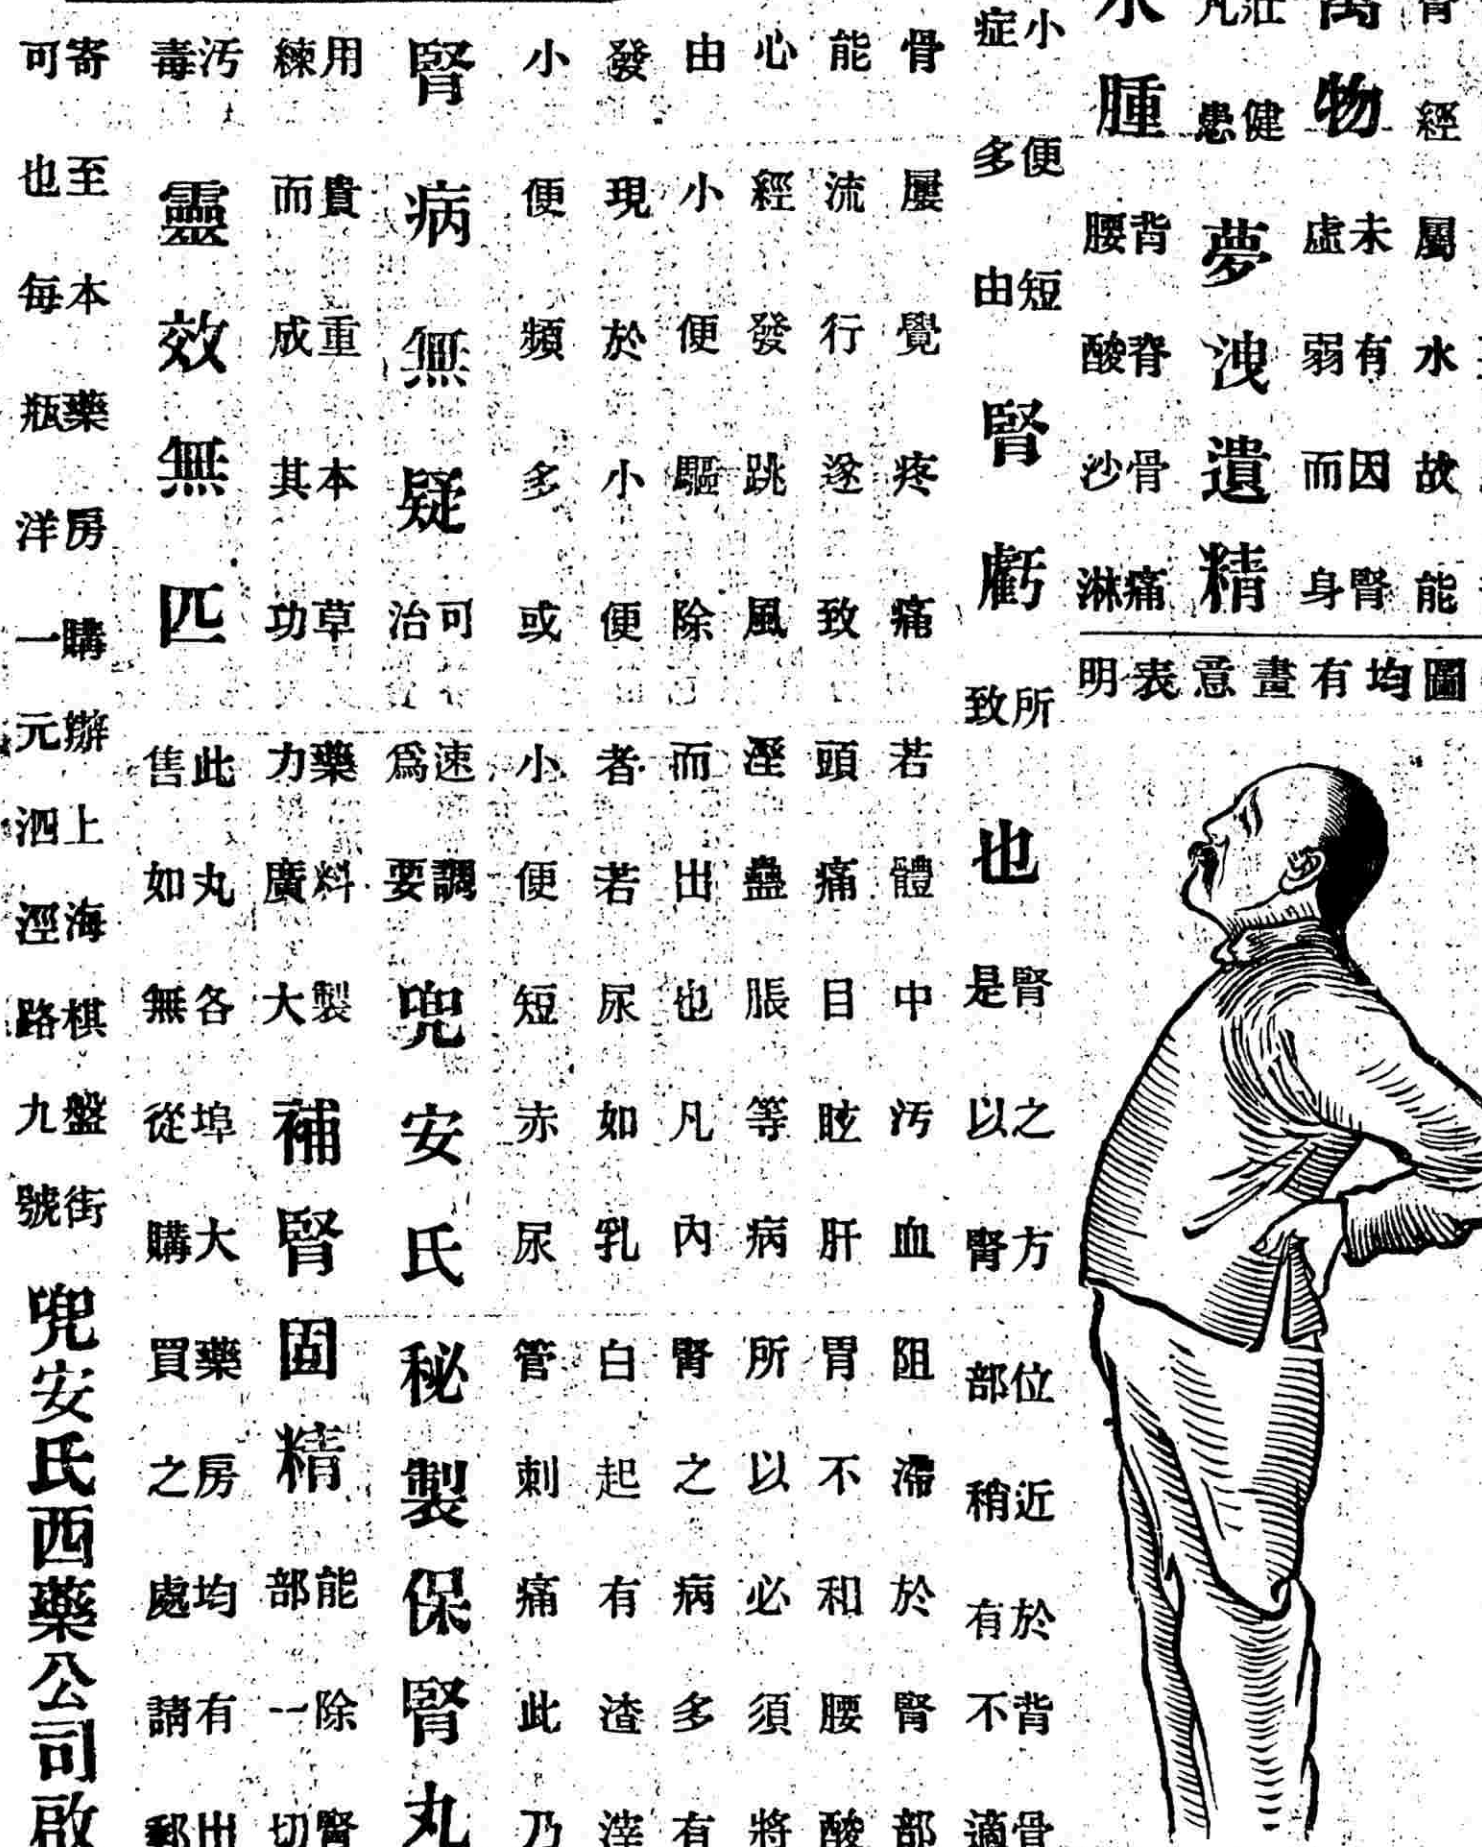 經屬水故能
萬物
未有因腎
虛弱而身
壯健
凡患
夢洩遺精
水腫
背脊骨痛
腰酸沙淋
圖均有畫意表明
小便短
症多由
腎虧
所
致
也
腎之方位近於背骨
是以腎部稍有不適
骨屢覺疼痛若體中汚血阻滯於腎部
能流行遂致頭痛目眩肝胃不和腰酸
心經發跳風溼蠱脹等病所以必須將
由小便驅除而出也凡內腎之病多有
發現於小便者若尿如乳白起有渣滓
小便頻多或小便短赤尿管刺痛此乃
腎病無疑
可速調
治爲要
兜安氏秘製保腎丸
用貴重本草藥料製
練而成其功力廣大
補腎固精
能除腎
部一切
汚
毒
靈效無匹
此丸各埠大藥房均有出
售如無從購買之處請郵
寄至本藥房購辦上海棋盤街
可也每瓶洋一元泗涇路九號
兜安氏西藥公司啟